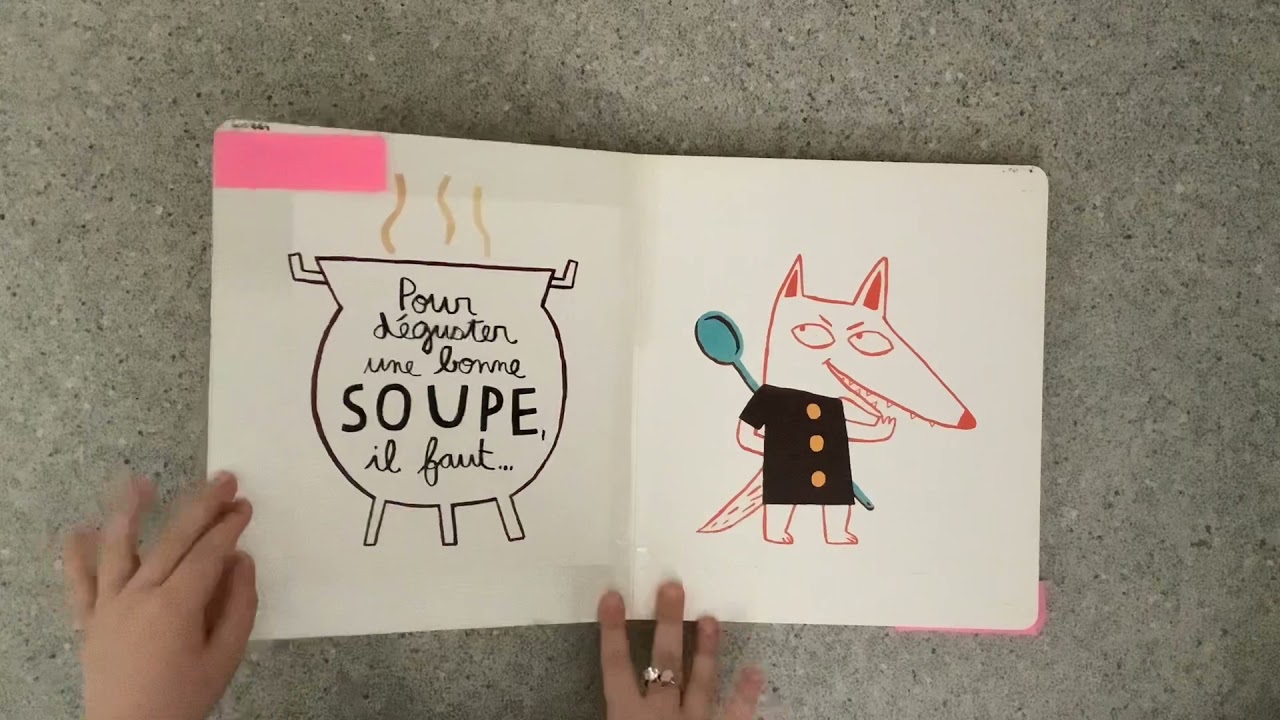 Pour
déguster
une bonne
SOUPE,
il faut...